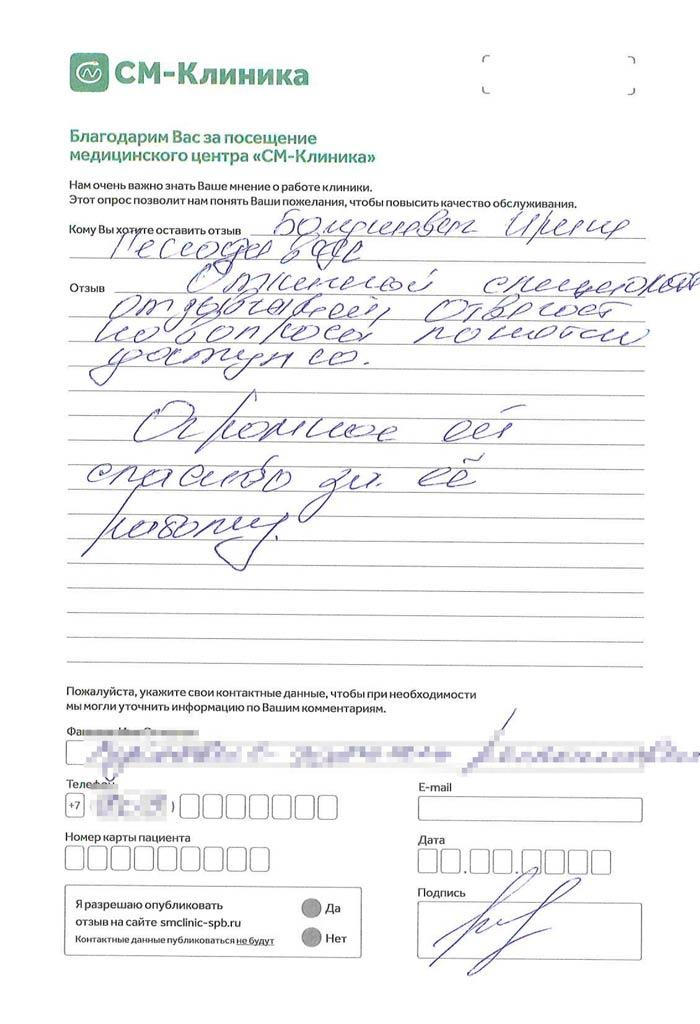 СМ-Клиника
Благодарим Вас за посещение
медицинского центра «СМ-Клиника»
Нам очень важно знать Ваше мнение о работе клиники.
Этот опрос позволит нам понять Ваши пожелания, чтобы повысить качество обслуживания.
Кому Вы хотите оставить отзыв
Отзыв Отличный
отзывчивый, отвечает
на вопросы понятно
доступно.
Огромное ей
спасибо за её
работу.
Пожалуйста, укажите свои контактные данные, чтобы при необходимости
мы могли уточнить информацию по Вашим комментариям.
Телефон
+7 ( )
E-mail
Номер карты пациента
Дата
Я разрешаю опубликовать
отзыв на сайте smclinic-spb.ru
Контактные данные публиковаться не будут
Да
Нет
Подпись